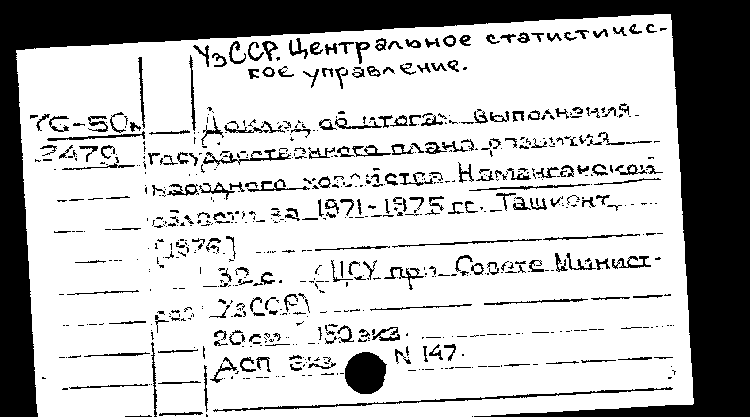 УзССР. Центральное статистичес-
кое управление.
76-50к Доклад об итогах выполнения
2479 государственного плана развития
народного хозяйства Наманганской
области за 1971-1975 гг. Ташкент,
[1976]
32 с. (ЦСУ при Совете Минист-
ров УзССР)
20 см 150 экз.
ДСП Экз. N 147.